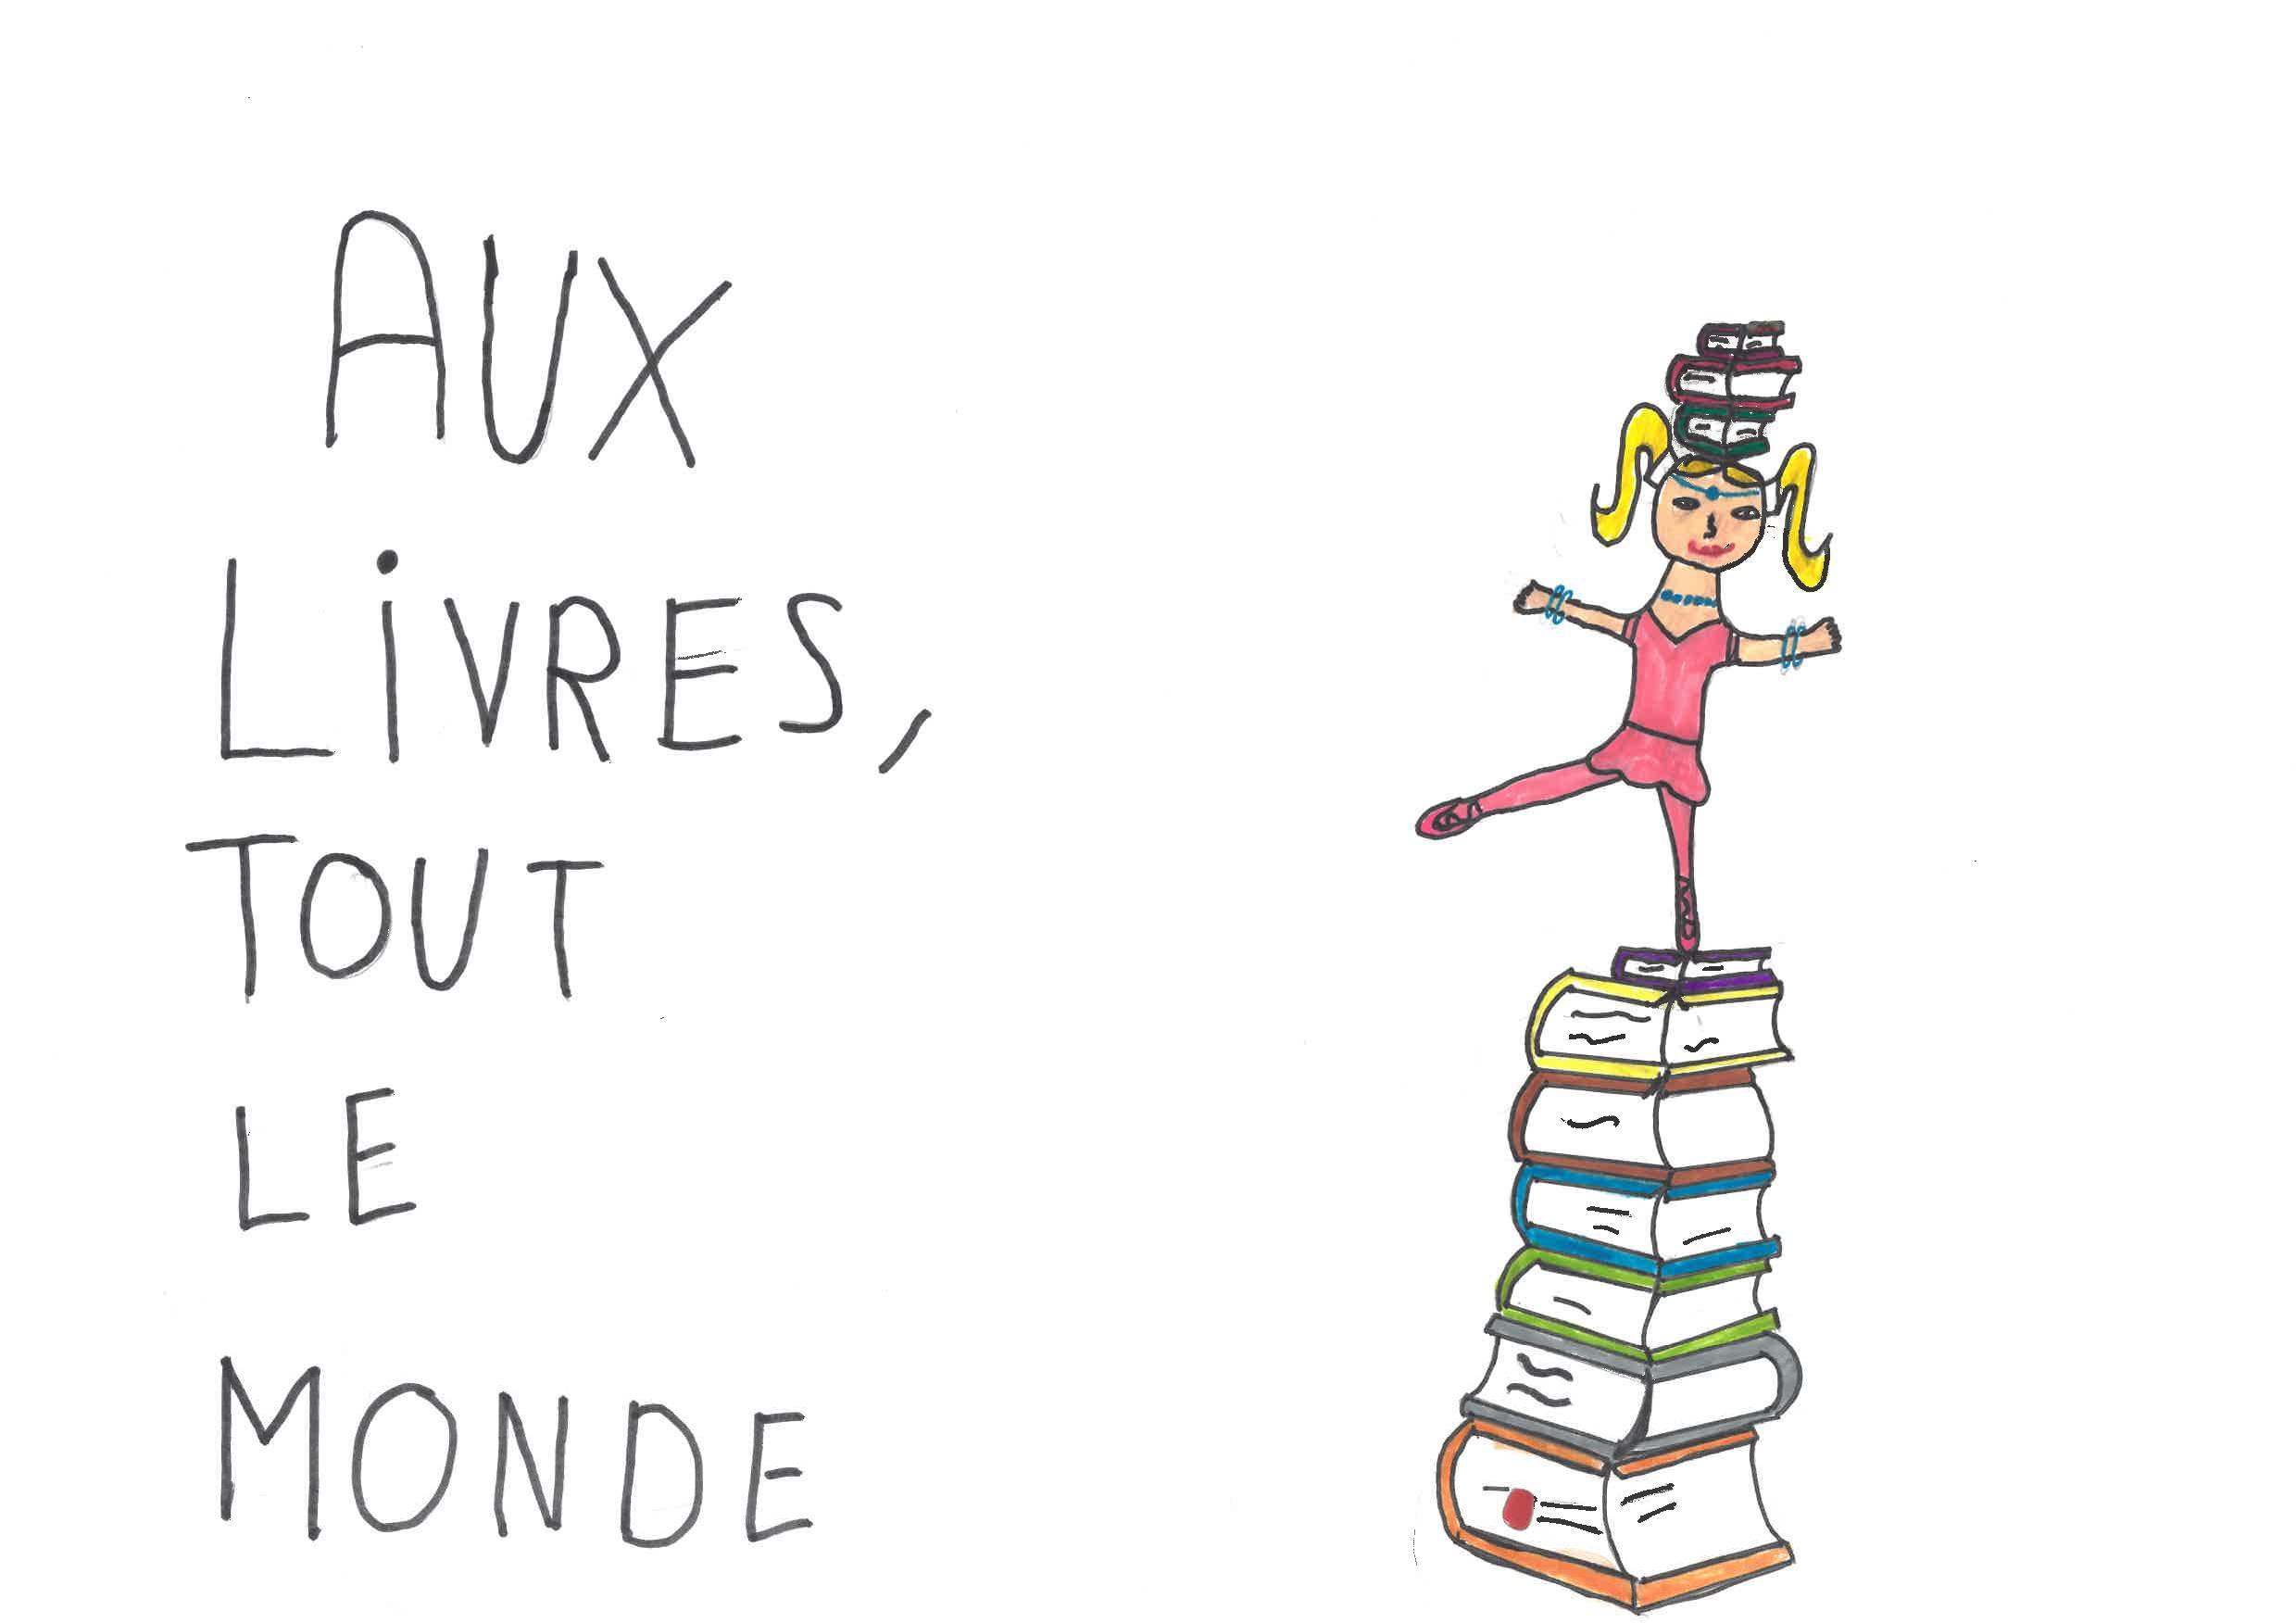 AUX
LiVRES,
TOUT
LE
MONDE